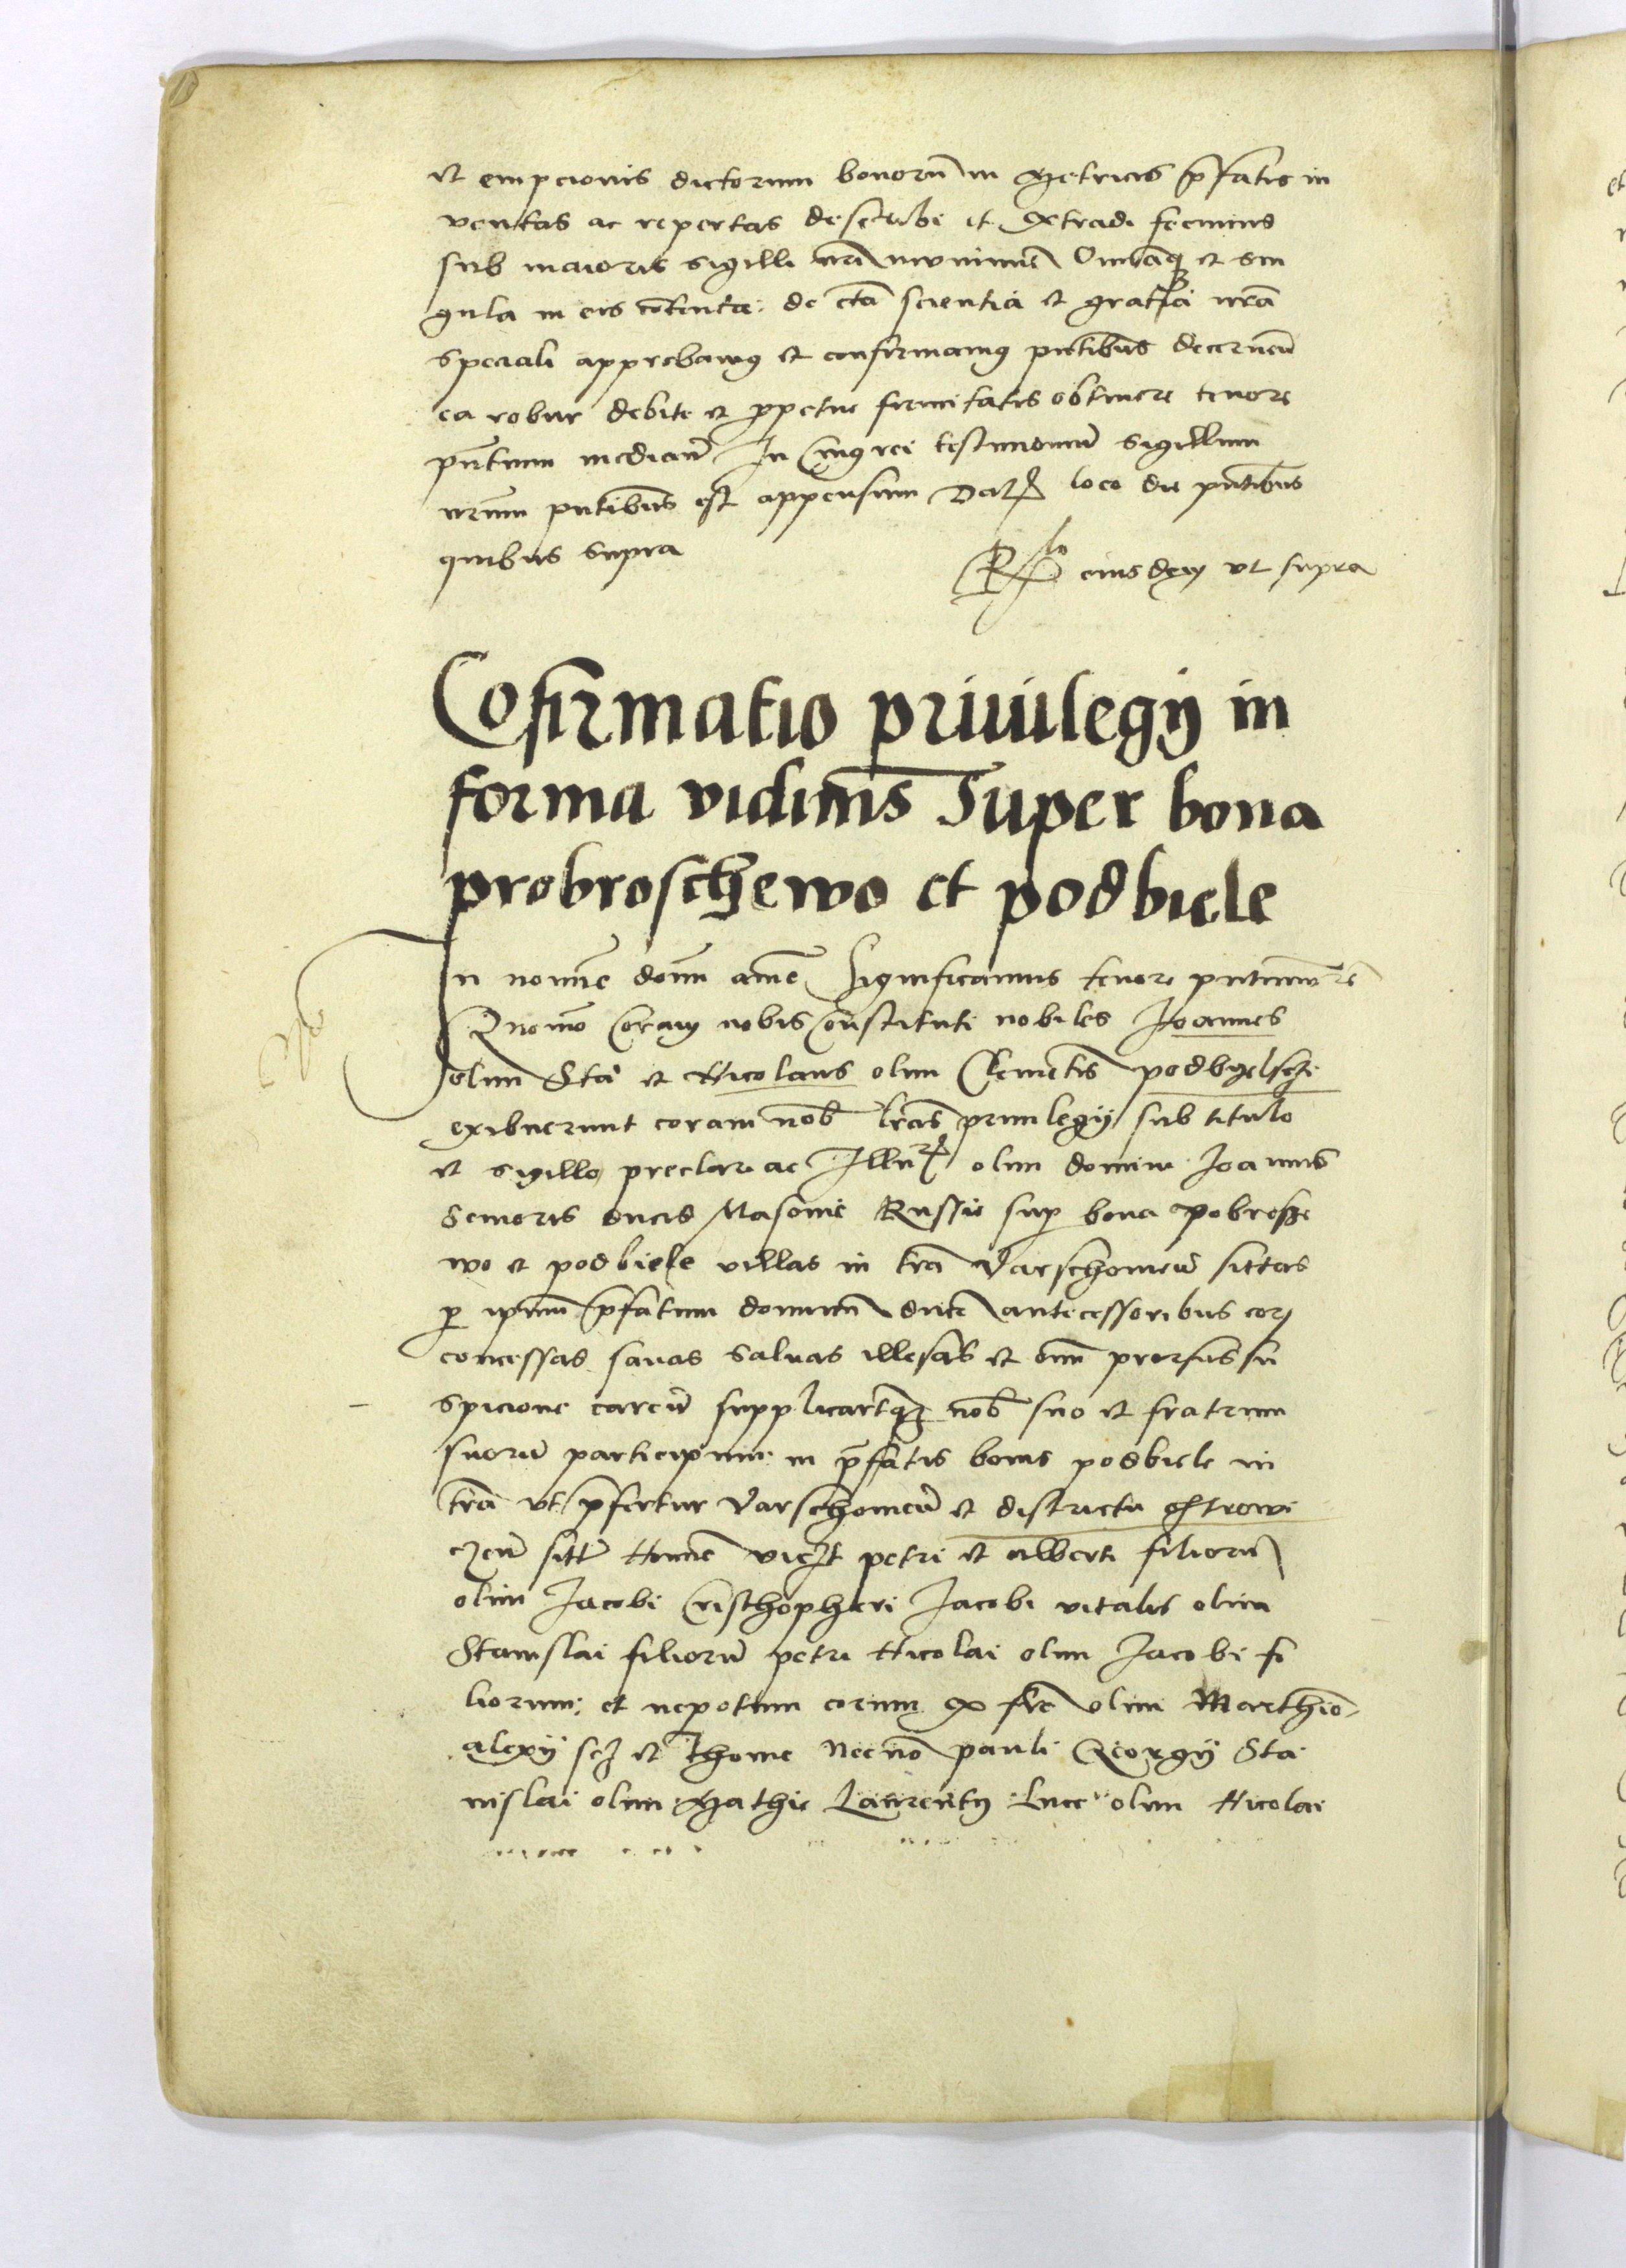 et empcionis dictorum bonorū in Metricis p̄fatis in
ventas ac repertas describi et extradi fecimus
sub maioris sigilli nr̄i munimīe Om̄iaq3 et sin
gula in eis cōtenta: de c̄ta scientia et gratia nr̄a
speciali approbamꝯ et confirmamꝯ pn̄tibus decernen̄
ea robur debite et ꝑpetue firmitatis obtinere tenore
pn̄tium median̄ In Cuiꝯ rei testimoniū sigillum
nr̄um pn̄tibus est appensum Datꝝ loco die pn̄tibus
quibus supra
Rͣͭᵒ eiusdem vt supra
Cōfirmatio priuilegÿ in
forma vidimꝰ Super bona
probroschewo et podbiele
In nomīe domī amē Significamus tenore pn̄tium rē
Quomō Coram nobis Constituti nobiles Joannes
olim Sta et Nicolaus olim Clemētis podbyelsczi
exibuerunt coram nob̄ lr̄as priuilegÿ sub titulo
et sigillo preclari ac Illuꝝ olim domini Joannis
Senioris ducis Masouie Russie suꝑ bona Pobrosze
wo et podbiele villas in tr̄a Varschouien̄ sittas
ꝑ ipsum p̄fatum dominū ducē antecessoribus eoꝝ
concessas sanas saluas illesas et omī prorsus su
spicione caren̄ supplicar̄tq3 nob̄ suo et fratrum
suorū participium in p̄fatis bonis podbiele in
tr̄a vt p̄fertur Varschouien̄ et districtu ostrowi
czen̄ sitt̄ Nomīe viczt petri et alberti filiorū
olim Jacobi Cristhopheri Jacobi vitalis olim
Stanislai filiorū petri Nicolai olim Jacobi fi
liorum; et nepotum eorum ex fr̄e olim Marthino
alexÿ scz et Thome Necnō pauli Georgÿ Sta
nislai olim Mathie Laurentÿ Luce olim Nicolai